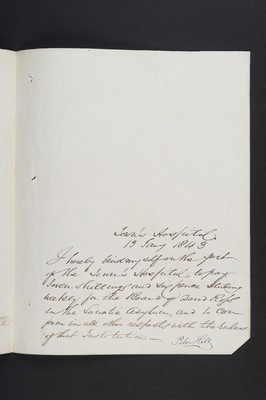 Town's Hospital
13 Jany 1843
I hereby bind myself on the part
of the Town's Hospital to pay
Seven Shillings and Six pence Sterling
weekly for the Board of David Ross
in the Lunatic Asylum, and to con
form in all other respects with the rules
of that Institution —
Peter Hill